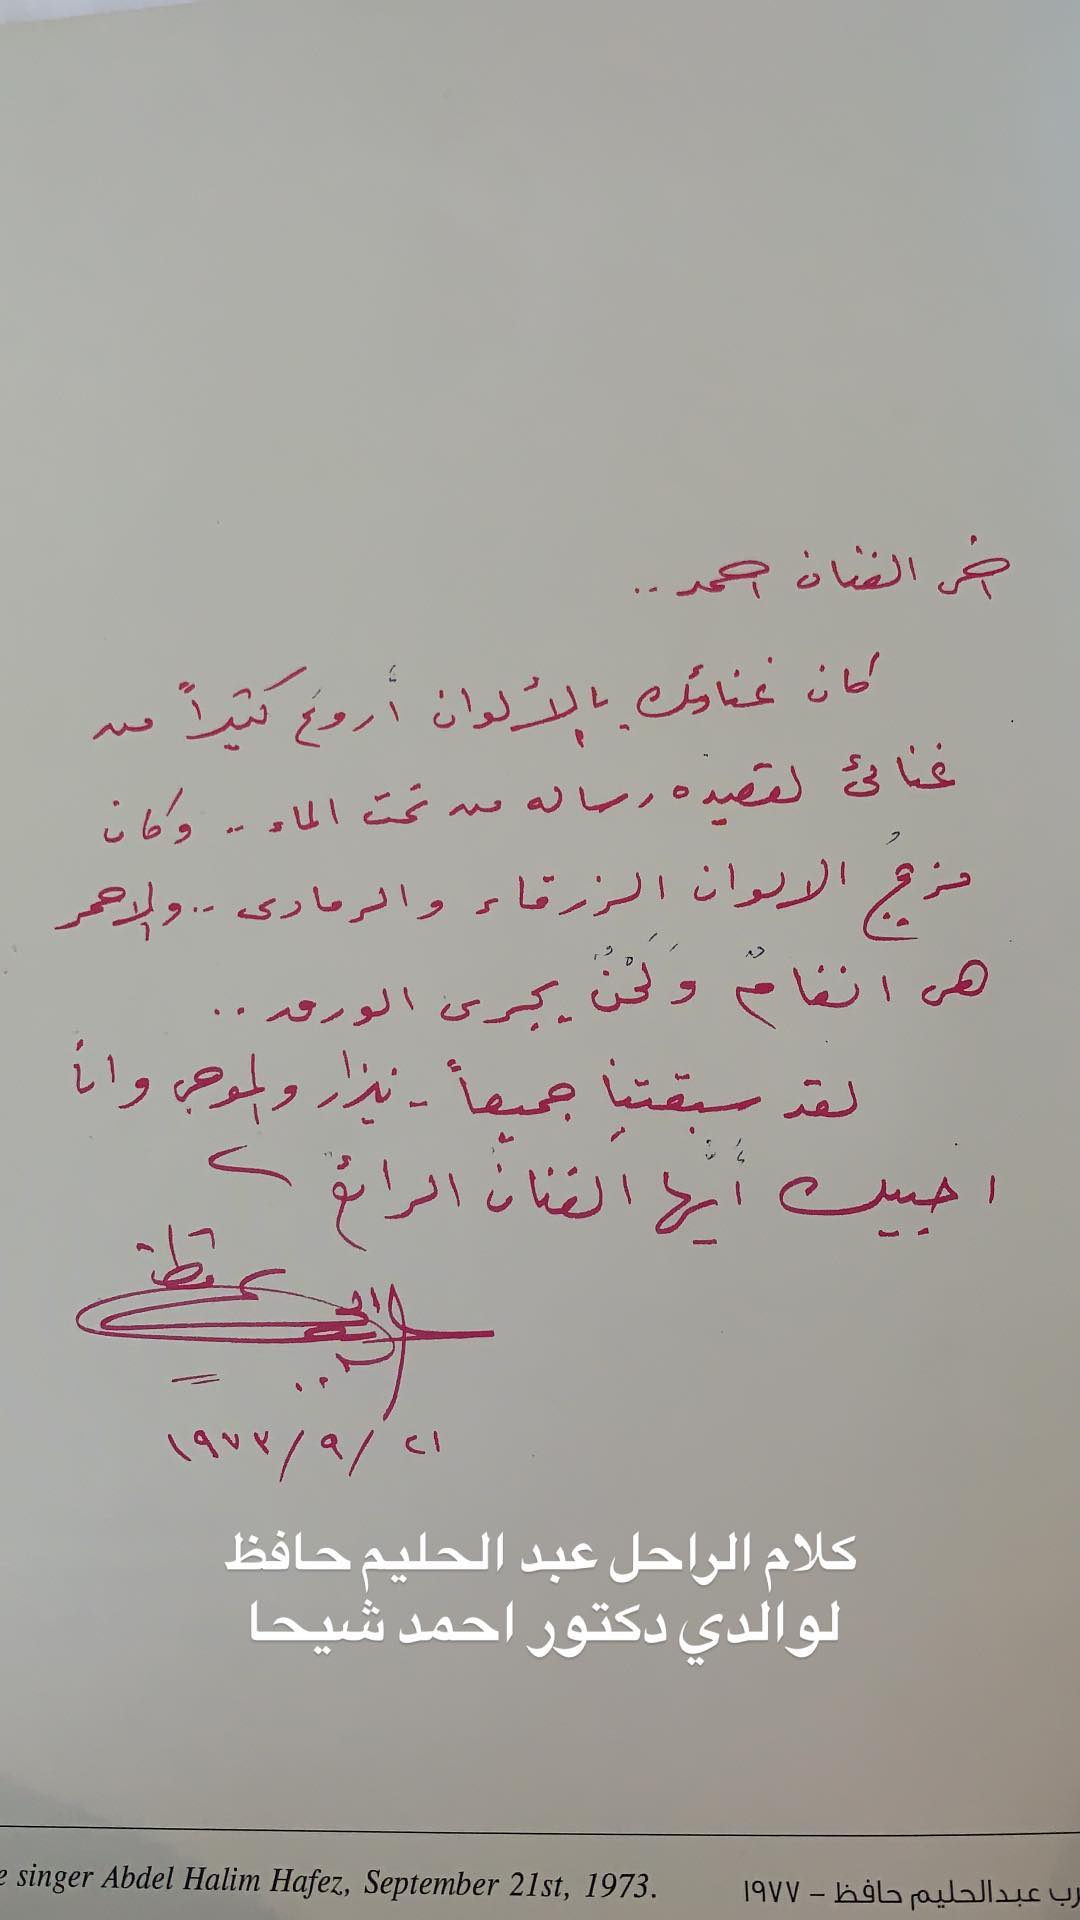 اخى الفنان احمد ..
كان غناؤك بالألوان أروعَ كثيراً من
غنائى لقصيده رساله من تحت الماء .. وكان
مزجُ الالوان الزرقاء والرمادى .. والاحمر
هى انغامٌ وَلَحْنٌ يجرى الورق ..
لقد سبقتنا جميعاً - نزار والموجى وانا
احييك أيُّها الفنان الرائع
عبد الحليم حافظ
٢١ / ٩ / ١٩٧٣
كلام الراحل عبد الحليم حافظ
لوالدي دكتور احمد شيحا
singer Abdel Halim Hafez, September 21st, 1973.
عبدالحليم حافظ – ١٩٧٧